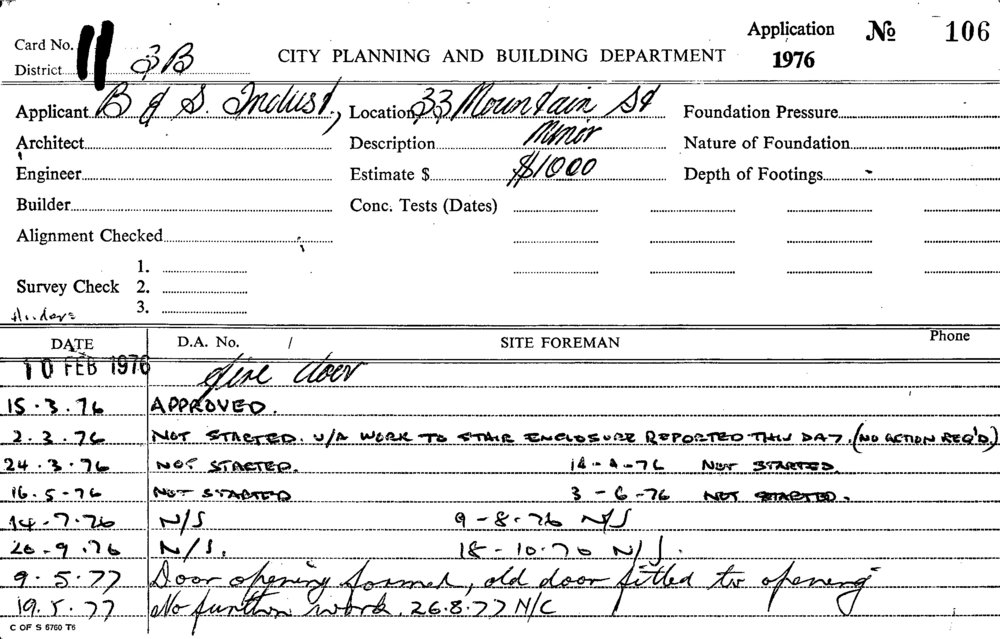 Application № 106
Card No. 11
CITY PLANNING AND BUILDING DEPARTMENT 1976
District 3B
Applicant B & S. Indust., Location 33 Mountain St Foundation Pressure
Architect Description Minor Nature of Foundation
Engineer Estimate $ $1000 Depth of Footings
Builder Conc. Tests (Dates)
Alignment Checked
1.
Survey Check 2.
3.
DATE D.A. No. / SITE FOREMAN Phone
10 FEB 1976 fire door
15.3.76 APPROVED.
2.3.76 NOT STARTED. U/A WORK TO STAIR ENCLOSURE REPORTED THIS DAY. (NO ACTION REQ'D.)
24.3.76 NOT STARTED. 14-4-76 NOT STARTED.
16.5-76 NOT STARTED 3-6-76 NOT STARTED.
14.7.76 N/S 9-8.76 N/S
20.9.76 N/S. 18-10.76 N/S.
9.5.77 Door opening formed, old door fitted to opening
19.5.77 No further work. 26.8.77 N/C
C OF S 6760 T6